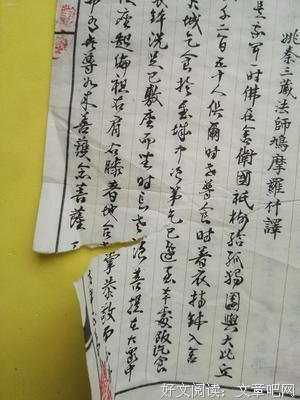 姚秦三藏法師鳩摩羅什譯
是我聞一时佛在舍衛國祇树给孤獨園與大比丘
千二百五十人俱爾时世尊食时著衣持缽入舍
大城乞食於其城中次第乞已還至本處飯食
衣缽洗足已敷座而坐时長老须菩提在大眾中
座起偏袒右肩右膝著地合掌恭敬而
有世尊如來善護念菩薩
好文阅读：文章吧网